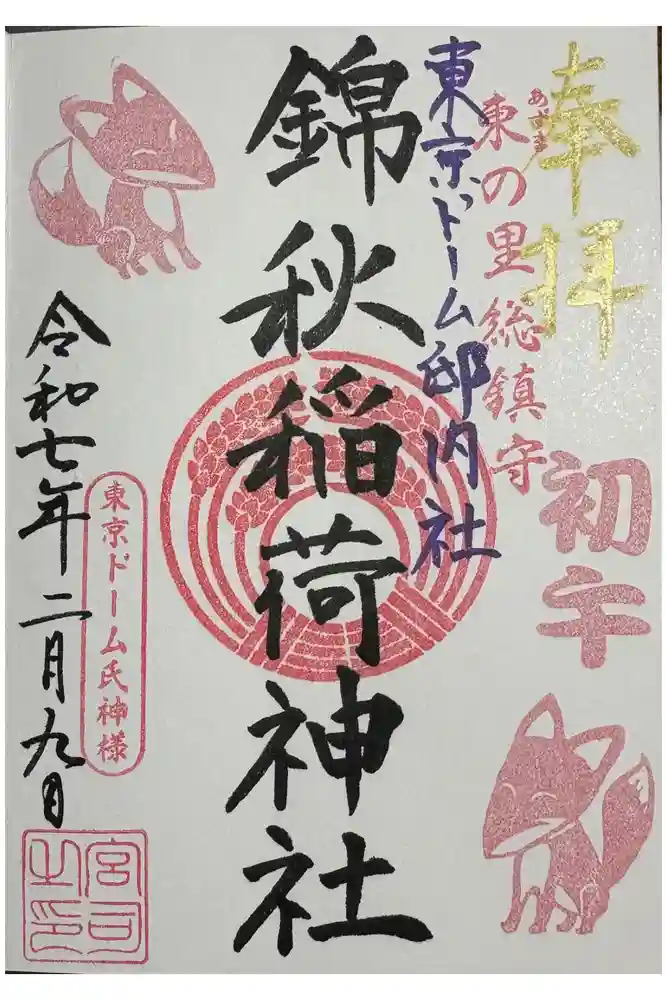 奉拝
あずま
東の里総鎮守
初午
東京ドーム邸内社
錦秋稲荷神社
東京ドーム氏神様
令和七年二月九日
宮司之印